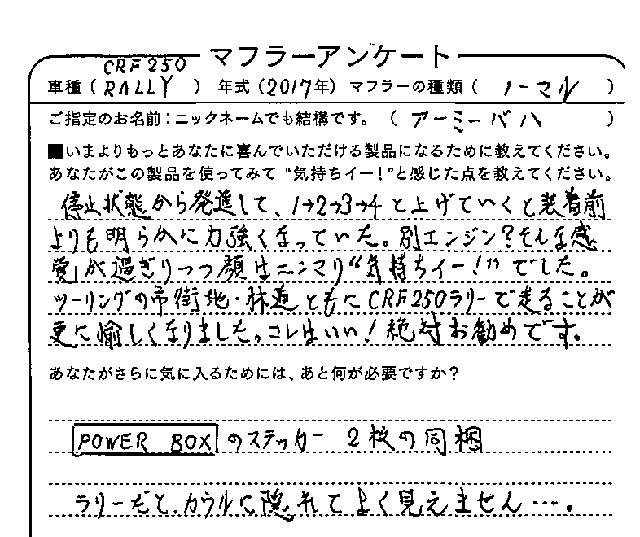 マフラーアンケート
車種（CRF250 RALLY）年式（2017年）マフラーの種類（ノーマル）
ご指定のお名前：ニックネームでも結構です。（アーミーババ）
■いまよりもっとあなたに喜んでいただける製品になるために教えてください。
あなたがこの製品を使ってみて“気持ちイー！”と感じた点を教えてください。
停止状態から発進して、1→2→3→4と上げていくと装着前
よりも明らかに力強くなっていた。別エンジン？そんな感
覚が過ぎりつつ顔はニンマリ“気持ちイー！”でした。
ツーリングの市街地・林道ともにCRF250ラリーで走ることが
更に愉しくなりました。コレはいい！絶対お勧めです。
あなたがさらに気に入るためには、あと何が必要ですか？
POWER BOXのステッカー 2枚の同梱
ラリーだと、カウルに隠れてよく見えません…。